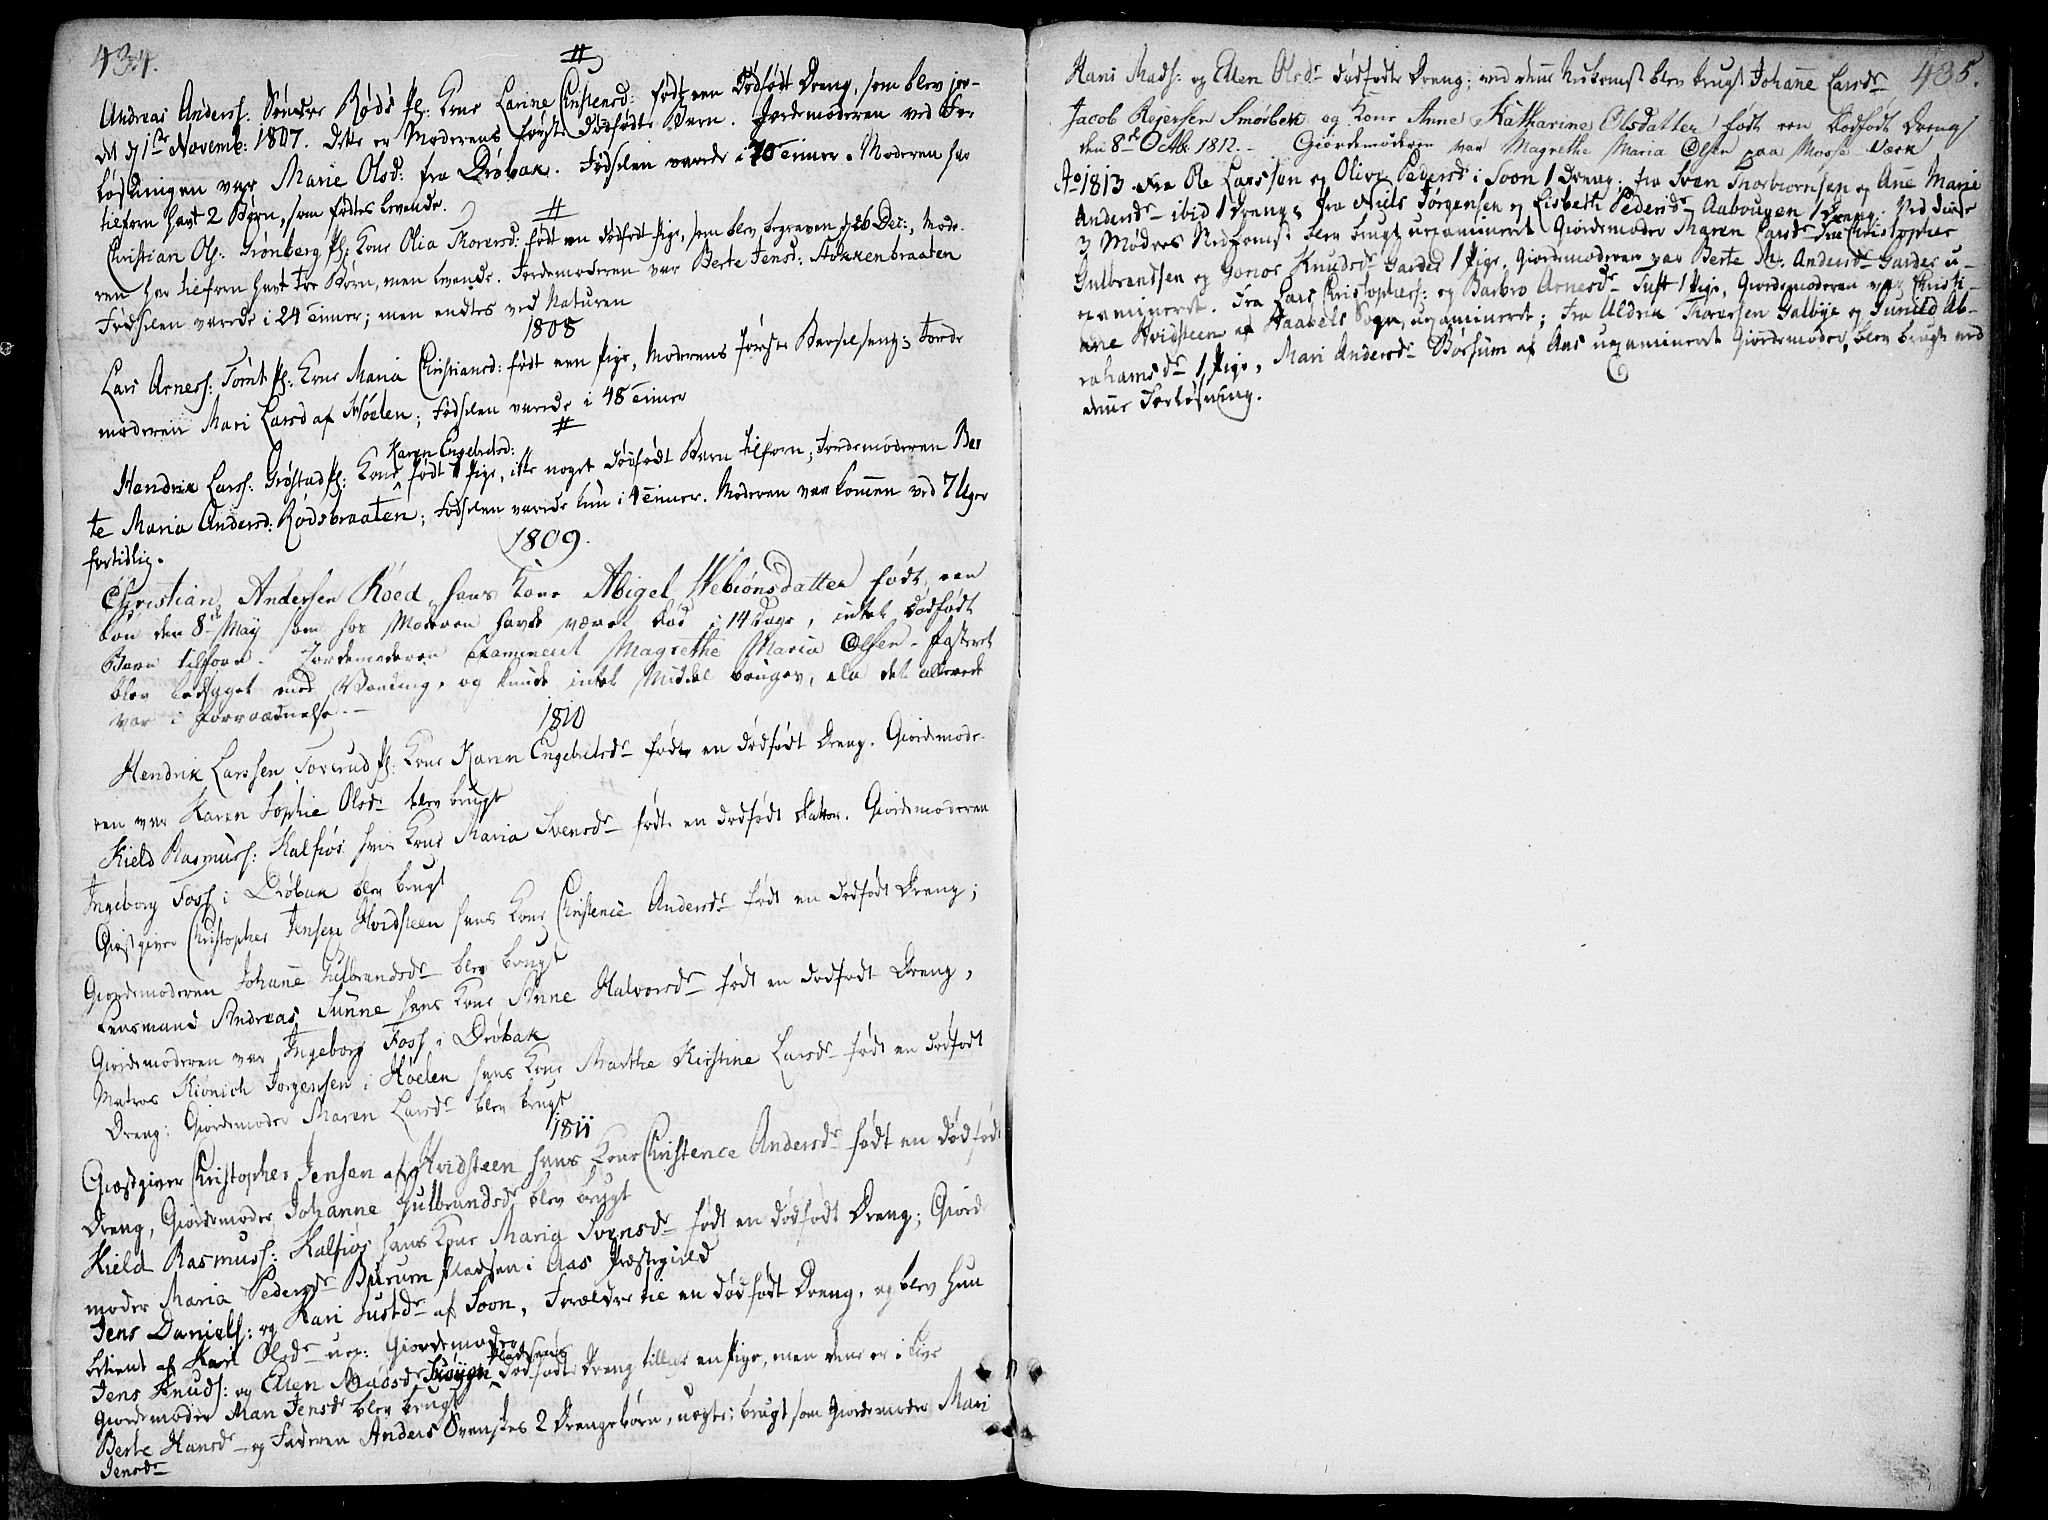 434.
#
Andreas Anderss: Søndre Røds Pl: Kone Larine Christensd: født een Dødfødt Dreng, som blev jor-
det d 1ste Novemb: 1807. Dette er Moderens første dødfødte Barn. Jordemoderen ved For
løsningen var Marie Olsd: fra Drøbak. Fødselen varede i 70 Timer. Moderen har
tilforn havt 2 Børn, som fødtes levende.
#
Christian Ols: Grønberg Pl: Kone Olia Thorersd: født en dødfødt Pige, som blev begraven d 26 Dec:, Mode-
ren har tilforn havt tre Børn, men levende. Jordemoderen var Berte Jensd: Stokkenbraaten
Fødselen varede i 24 Timer; men endtes ved Naturen
1808
Lars Arness: Tomt Pl: Kone Maria Christiansd: født een Pige, Moderens første Barselseng; Jorde
moderen Mari Larsd af Hølen; Fødselen varede i 48 Timer
#
Karen Engebretsd:
Hendrik Larss: Grøstad Pl: Kone født 1 Pige, ikke noget dødfødt Barn tilforn; Jordemoderen Ber
te Maria Andersd: Rødsbraaten; Fødselen varede kun i 4 Timer. Moderen var kommen ved 7 Uger
fortidlig.
1809.
Christian Andersen Roed, hans Kone Abigel Webiønsdatter født een
Søn den 8de May som hos Moderen havde været død i 14 Dage, intet dødfødt
Barn tilforn. Jordemoderen Examineret Magrethe Maria Olsen. Fosteret
blev ledsaget med Vending, og kunde intet Middel bruges, da det allerede
var i Forraadnelse. -
1810
Hendrik Larssen Toverud Pl: Kone Karen Engebretsdr født en dødfødt Dreng. Giordemode-
ren var Karen Sophie Olsdr blev brugt
Kield Rasmuss: Kalfiøs hans Kone Maria Svensdr født en dødfødt Datter. Giordemoderen
Ingeborg Foss i Drøbak blev brugt
Giæstgiver Christopher Jensen Hvidsteen hans Kone Christence Andersdr født en dødfødt Dreng;
Giordemoderen Johanne Gulbrandsdr blev brugt
Lensmand Andreas Sunne hans Kone Anne Halvorsdr født en dødfødt Dreng,
Giordemoderen var Ingeborg Foss i Drøbak
Matros Kiønich Jørgensen i Hølen hans Kone Marthe Kirstine Larsdr født en dødfødt
Dreng; Giordemoder Maren Larsdr blev brugt
1811
Giæstgiver Christopher Jensen af Hvidsteen hans Kone Christence Andersdr født en dødfødt
Dreng, Giordemoder Johanne Gulbrandsdr blev brugt
Kield Rasmuss: Kalfiøs hans Kone Maria Svensdr født en dødfødt Dreng; Giord
moder Maria Pedersdr Burum Pladsen i Aas Præstegield
Jens Daniels: og Kari Justdr af Soon, Forældre til en dødfødt Dreng, og blev hun
betient af Kari Olsdr uex: Giordemoder
Jens Knuds: og Ellen Madsdr Skøyen Pladsens dødfødte Dreng tillige en Pige, men denne er i Live
Giordemoder Mari Jensdr blev brugt
Berte Hansdr og Faderen Anders Svenskes 2 Drengebørn, uægte; brugt som Giordemoder Mari
Jensdr
435.
Hans Mads: og Ellen Olsdr dødfødte Dreng; ved denne Nedkomst blev brugt Johanne Larsdr
Jacob Rejersen Smørbek og Kone Anne Katharine Olsdatter født een dødfødt Dreng
den 8de Octbr. 1812. - Giordemoderen var Magrethe Maria Olsen paa Mosse Værk
Ao 1813. Fra Ole Larssen og Olive Pedersdr i Soon 1 Dreng; fra Sven Thorbiørnsen og Ane Marie
Andersdr ibid 1 Dreng; fra Niels Jørgensen og Lisbeth Pedersdr Aabougen 1 Dreng. Ved disse
3 Mødres Nedkomst blev brugt uexamineret Giordemoder Maren Larsdr Fra Christopher
Gulbrandsen og Gonor Knudsdr Garder 1 Pige, Giordemoderen var Berte M. Andersdr Garder u-
examineret. Fra Lars Christophers: og Barbro Arnesdr Tuft 1 Pige, Giordemoderen var Christi-
ane Hvidsteen af Haabels Sogn, uexamineret; fra Uldrik Thorersen Galbye og Gunild Ab-
rahamsdr 1 Pige, Mari Andersdr Børsum af Aas uexamineret Giordemoder, blev brugt ved
denne Forløsning.